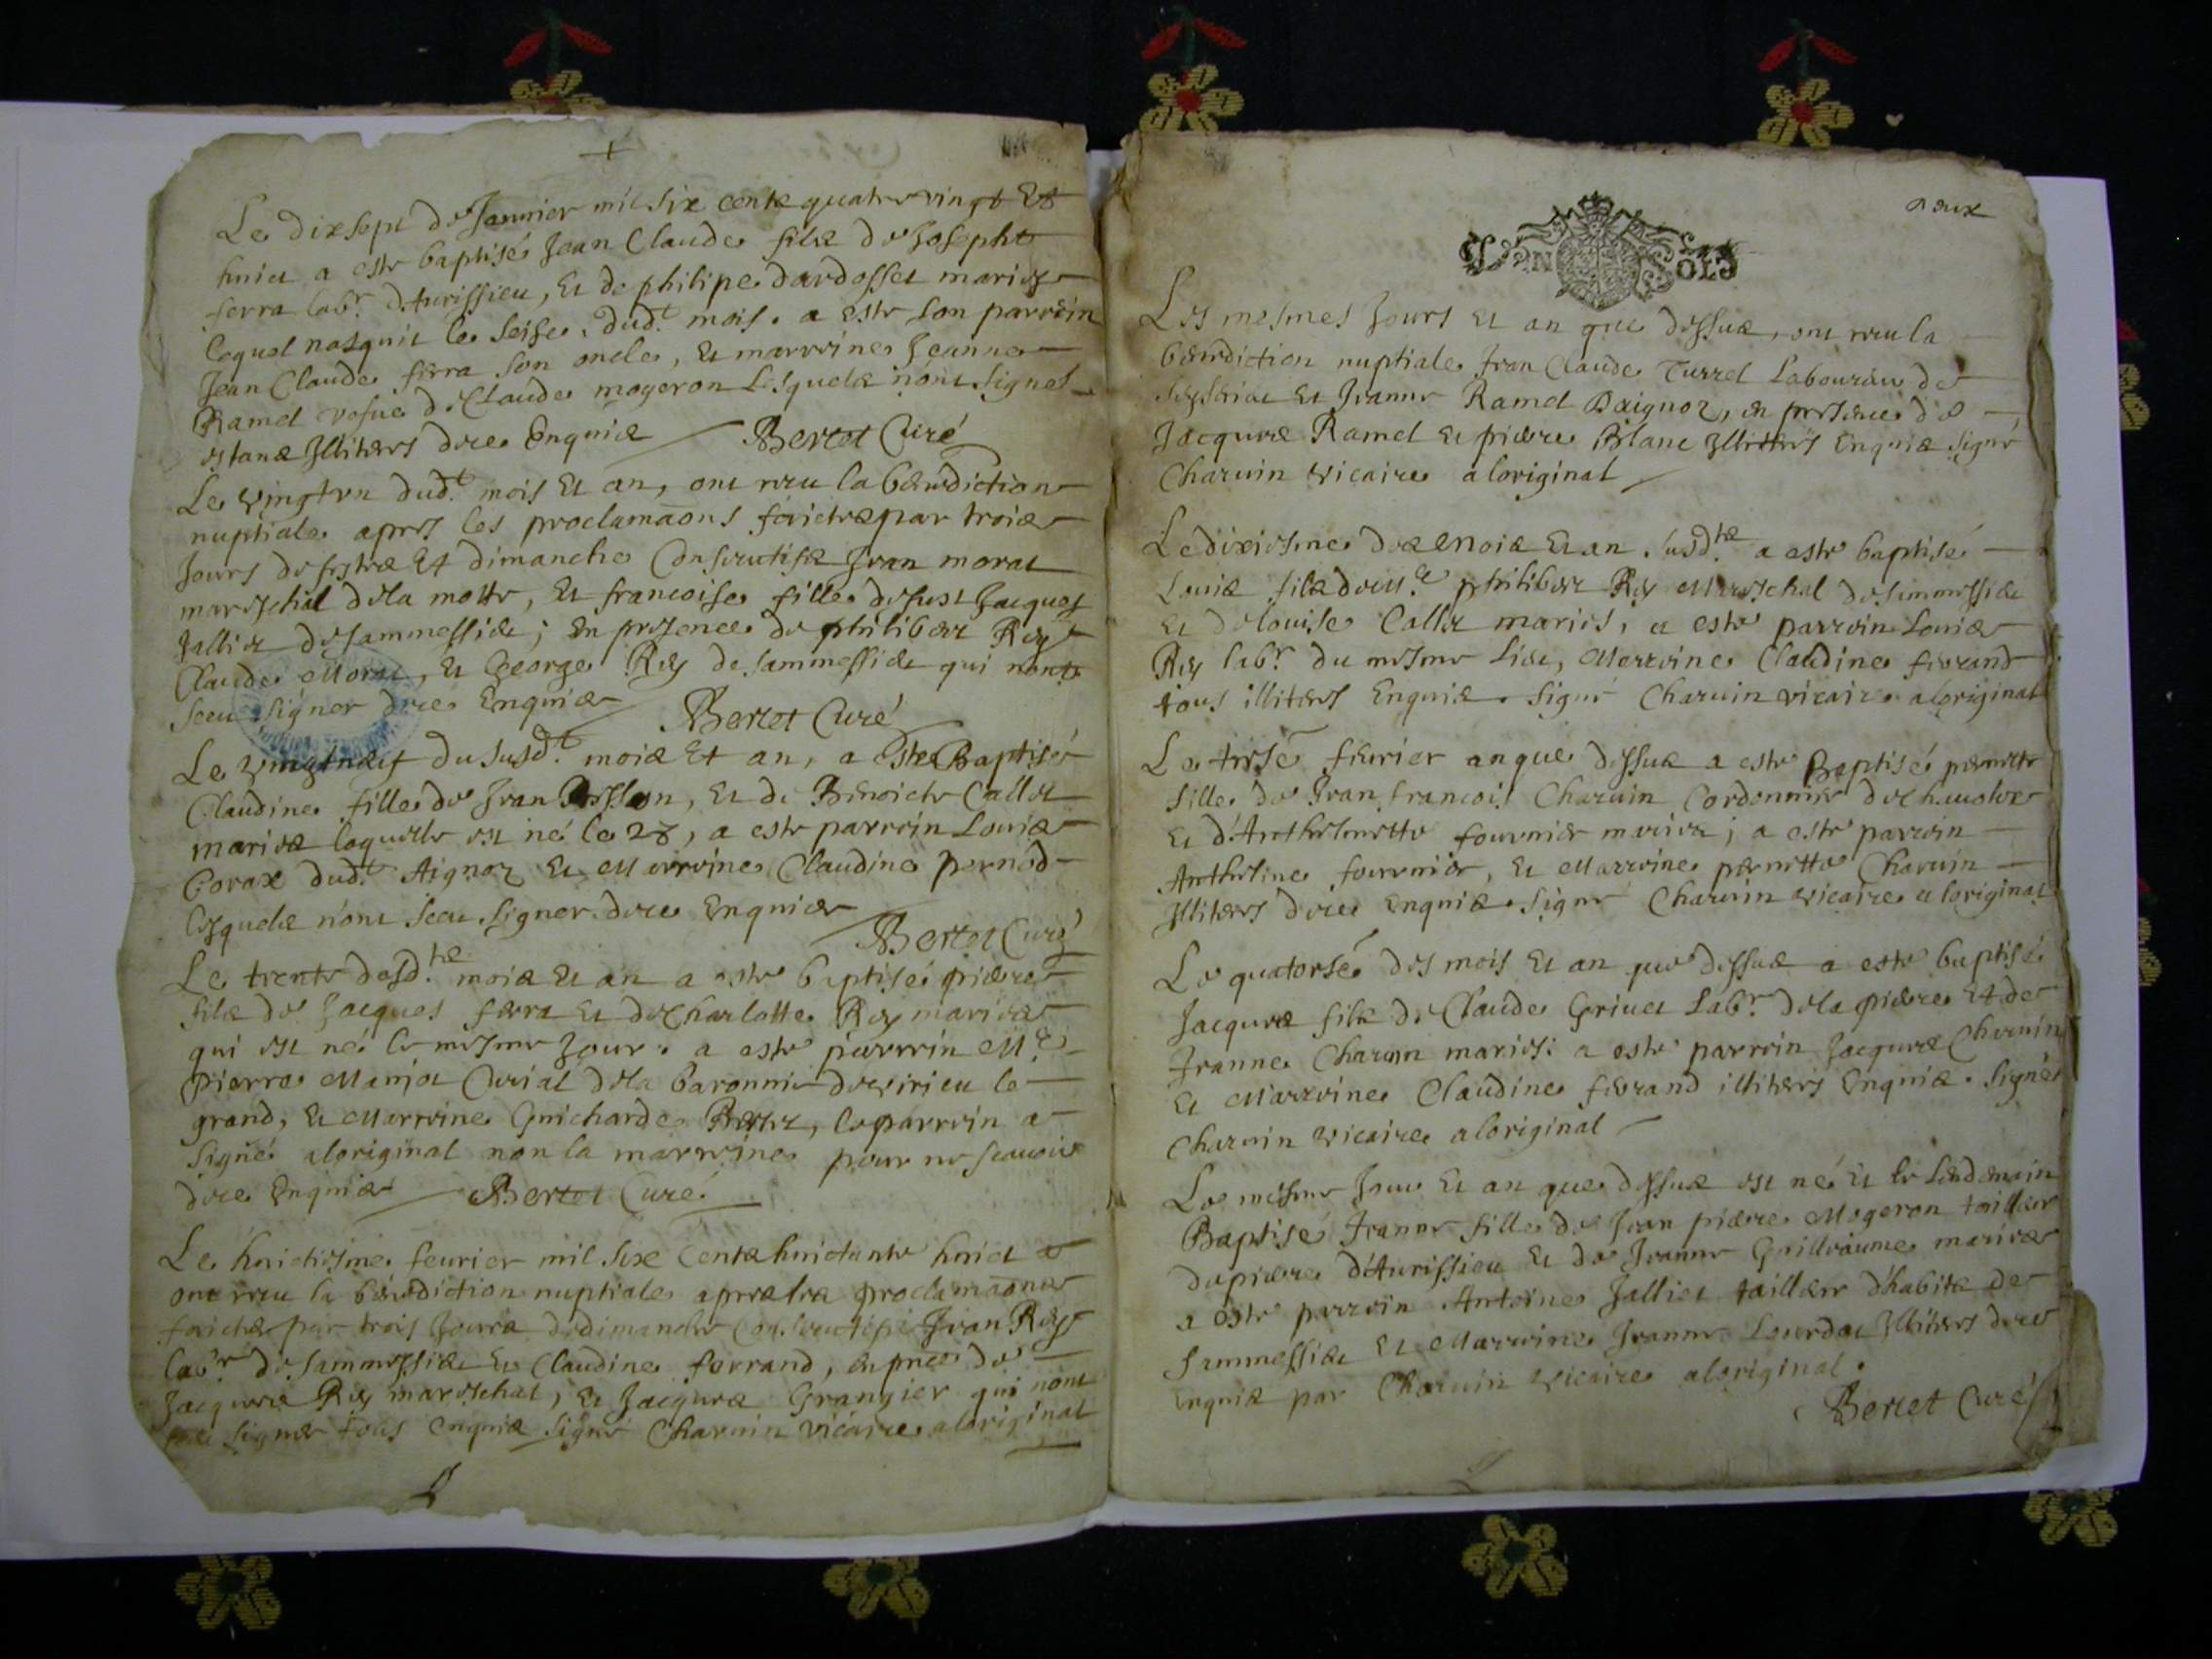 Le dixsept de Januier mil six centz quatre vingt Et
huict a este baptisé Jean Claude filz de Josephte
ferra labr. d'Aurissieu, Et de philipe dardosset mariez
lequel nasquit le seize dudt. mois. a este son parrein
Jean Claude ferra son oncle, Et marreine Jeanne
Ramel vefue de Claude mogeron Lesquelz n'ont signes
estanz Illiters dece Enquis Bertet Curé
Le vingtvn dudt. mois Et an, ont receu la benediction
nuptiale apres les proclamaons faictes par trois
Jours de festes Et dimanche Consecutifz Jean morat
mareschal dela motte, Et francoise fille de feust Jacques
Jallier de sammessiet; En presence de philibert Rey
Claude Morat, Et George Rey de sammessiet qui n'ont
sceu signer dece Enquis Bertet Curé
Le vingtneuf du susdt. mois Et an, a este Baptisé
Claudine fille de Jean, Et de Benoicte Callet
mariez laquelle est né le 28, a este parrein Louis
Corax dudt. Aignoz Et Marreine Claudine pernod
lesquelz n'ont sceu signer dece Enquis
Bertet Curé
Le trente desdtz mois Et an a este baptisé pierre
filz de Jacques ferra Et de Charlotte Rey mariez
qui est né le mesme Jour. a este parrein Me
pierre Manjot Curial dela baronnie de virieu le
grand, Et Marreine Guicharde, le parrein a
Signé aloriginal non la marreine pour ne scauoir
dece Enquis Bertet Curé
Le huictiesme feurier mil six Centz huictante huict
ont receu la benediction nuptiale apres les proclamaones
faictes par trois Jours de dimanche Consecutifz Jean Rey
labr. de sammessiet Et Claudine ferrand, en pnce de
Jacques Rey mareschal, Et Jacques Grangier qui n'ont
sceu signer tous enquis signé Charuin vicaire aloriginal
deux
Les mesmes Jours Et an que dessus, ont receu la
benediction nuptiale Jean Claude Turrel Laboureur de
Et Jeanne Ramel Daignoz, en presence de
Jacques Ramel Et pierre Blanc Illiters Enquis signé
Charuin vicaire aloriginal
Le dixiesme des mois Et an susdtz a este baptisé
Louis filz de Me philibert Rey Mareschal de sammessiet
Et de louise Callet mariés, a este parrein Louis
Rey labr. du mesme lieu, Marreine Claudine ferrand
tous illiters Enquis. signé Charuin vicaire aloriginal
Le tresé feurier an que dessus a este Baptisé pernette
fille de Jean francois Charuin Cordonnier
Et d'Anthelmette fournier mariez; a este parrein
Anthelme fournier, Et Marreine pernette Charuin
Illiters dece Enquis. signé Charuin vicaire aloriginal
Le quatorsé des mois Et an que dessus a este baptisé
Jacques filz de Claude Griuet Labr. dela pierre Et de
Jeanne Charuin mariés: a este parrein Jacques Charuin
Et Marreine Claudine ferrand illiters Enquis. Signé
Charuin vicaire aloriginal
Le mesme Jour Et an que dessus est né Et le Lendemain
Baptisé Jeanne fille de Jean pierre Mogeron tailleur
de pierre d'Aurissieu Et de Jeanne Guilleaume mariez
a este parrein Antoine Jalliet tailleur d'habitz de
sammessiet Et Marreine Jeanne Lourdet Illiters dece
enquis par Charuin vicaire aloriginal.
Bertet Curé